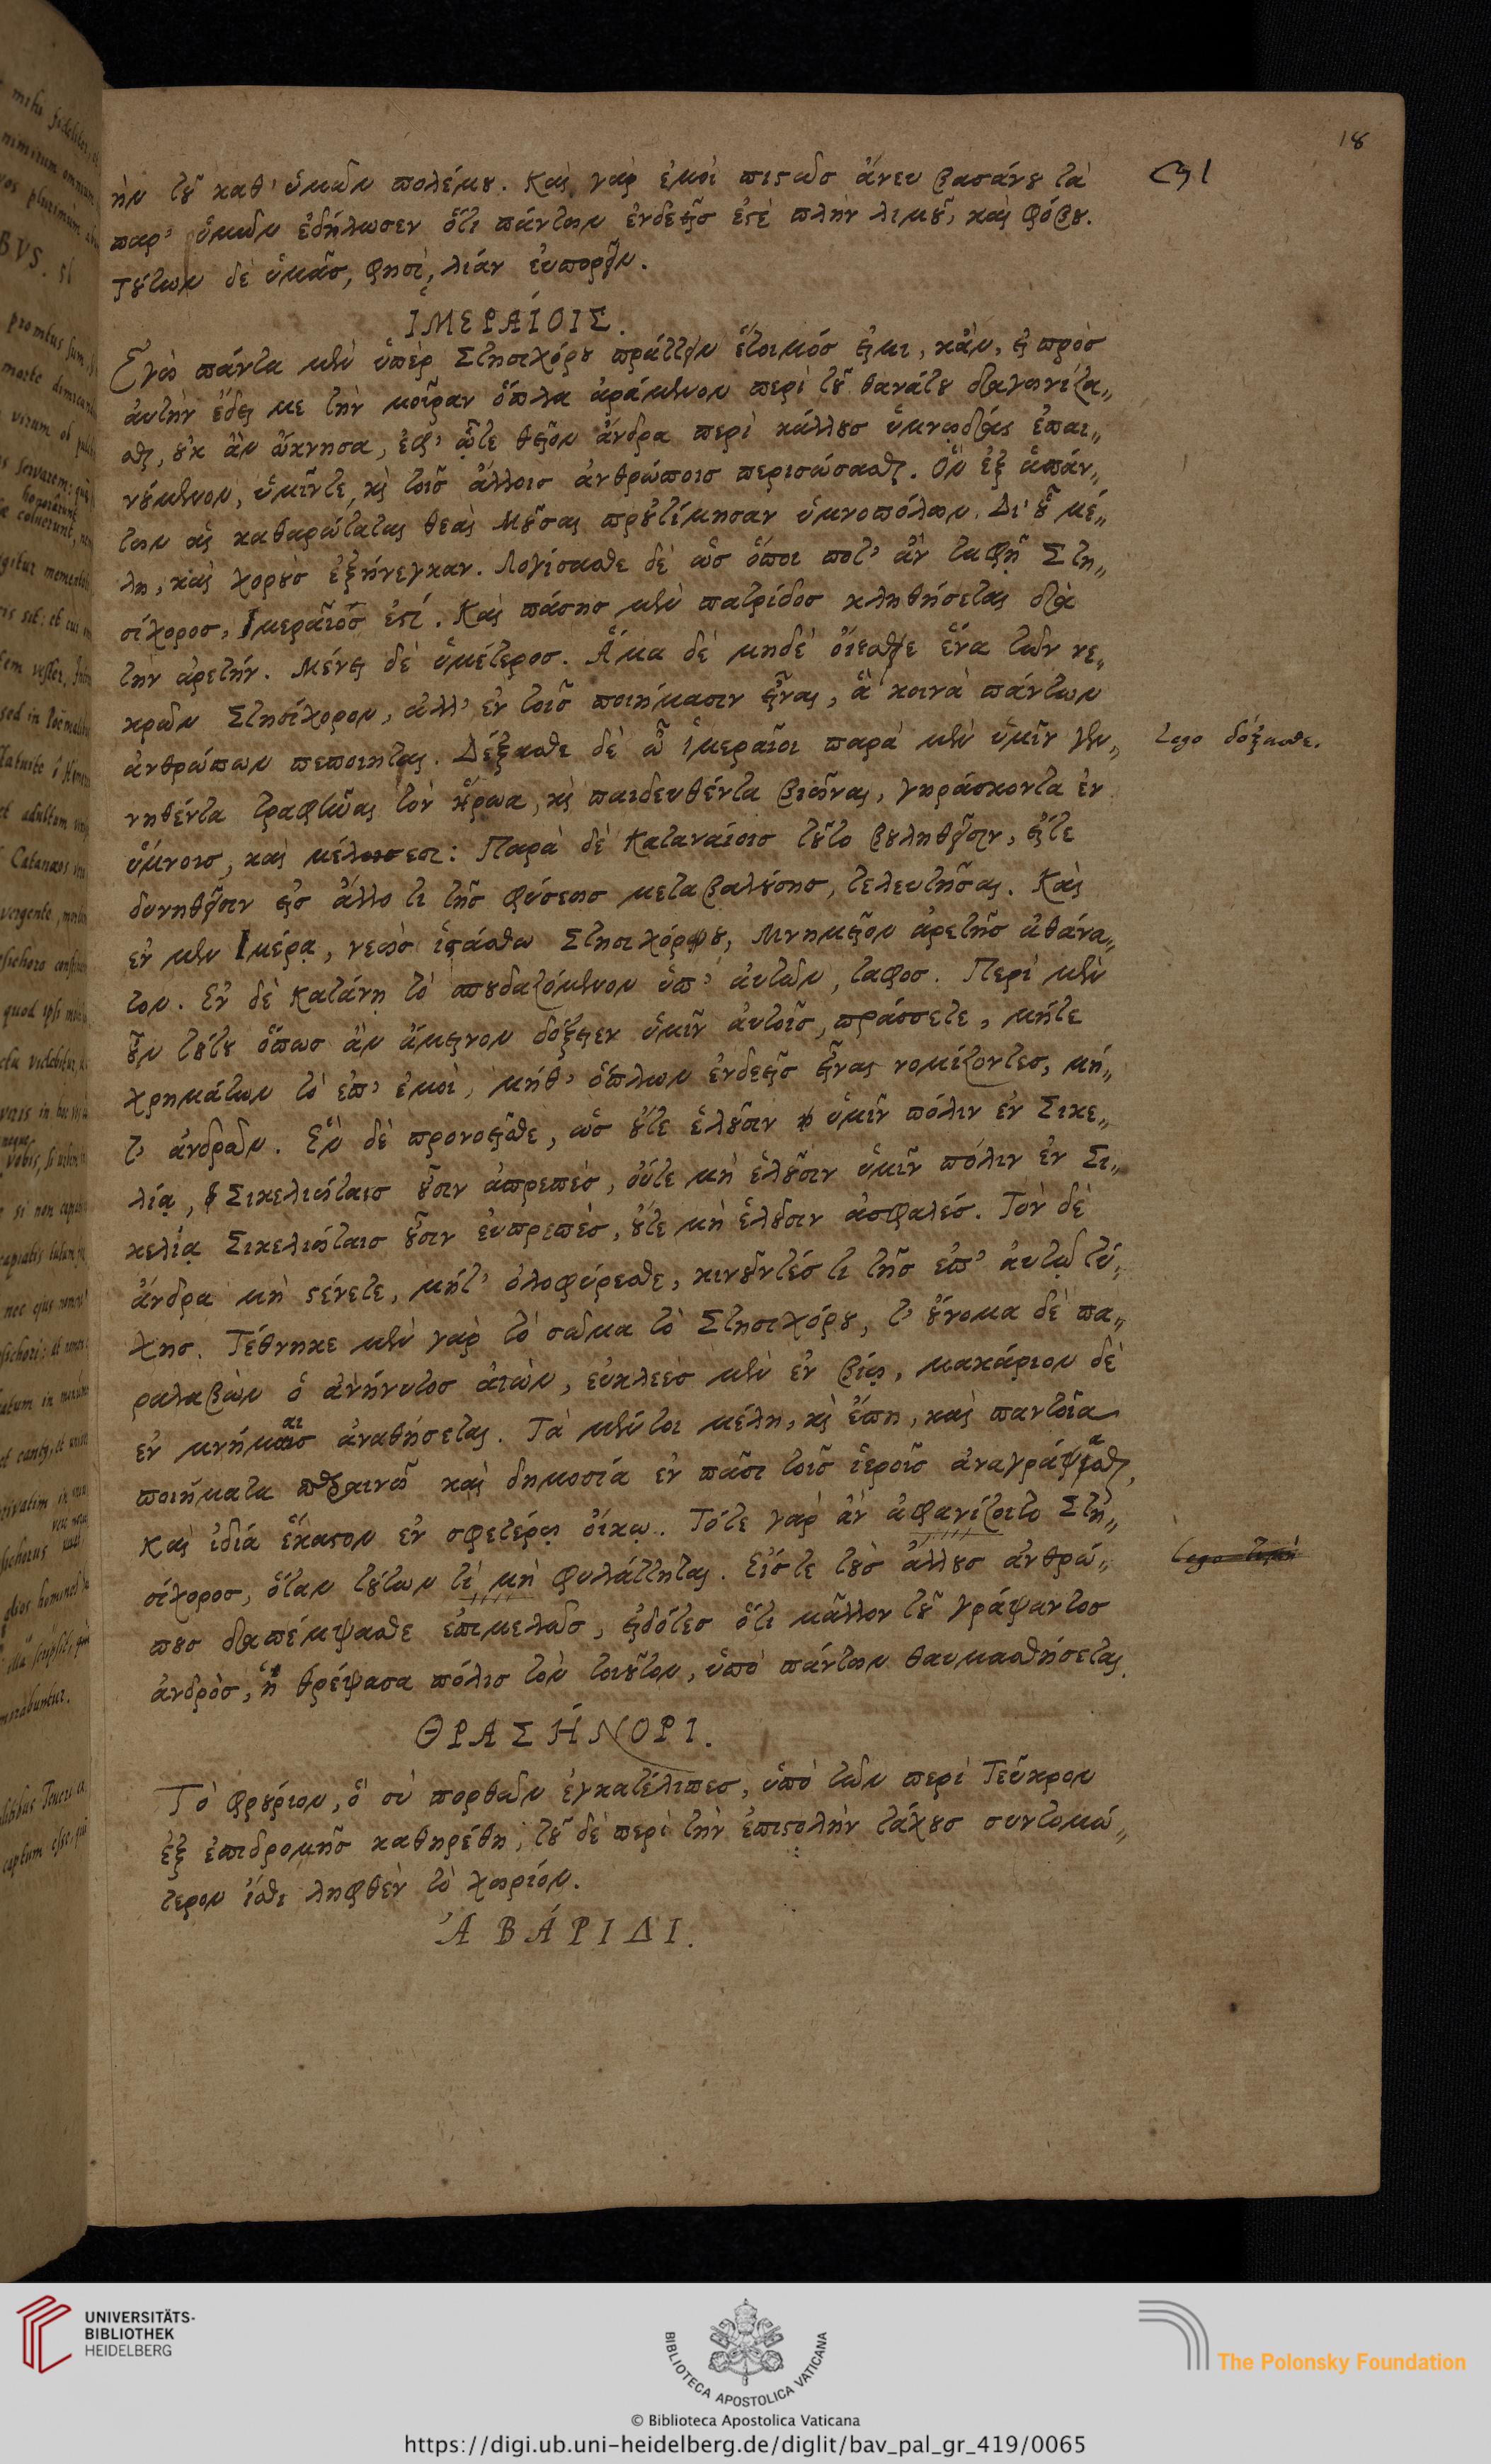 18
ην τοῦ καθ' ὑμῶν πολέμου. καὶ γὰρ ἐμοὶ πιστῶς ἄνευ βασάνου τὰ
παρ' ὑμῶν ἐδήλωσεν ὅτι πάντων ἐνδεεῖς ἐστὲ πλὴν λιμοῦ, καὶ φόβου.
τούτων δὲ ὑμᾶς, φησὶ, λίαν εὐπορεῖν.
ἹΜΕΡΑΊΟΙΣ.
Ἐγὼ πάντα μὲν ὑπὲρ Στησιχόρου πράττειν ἕτοιμός εἰμι, κἂν, εἰ πρὸς
αὐτὴν ἔδει με τὴν μοῖραν ὅπλα ἀράμενον περὶ τοῦ θανάτου διαγωνίζε„
σθαι, οὐκ ἂν ὤκνησα, ἐφ' ᾧτε θεῖον ἄνδρα περὶ κάλλους ὑμνῳδίας ἐπαι„
νούμενον, ὑμῖν τε, καὶ τοῖς ἄλλοις ἀνθρώποις περισώσασθαι. Ὃν ἐξ ἁπάν„
των αἱ καθαρώταται θεαὶ Μοῦσαι προὐτίμησαν ὑμνοπόλων. Δι' οὗ μέ„
λη, καὶ χοροὺς ἐξήνεγκαν. Λογίσασθε δὲ ὡς ὅποι ποτ' ἂν ταφῇ Στη„
σίχορος, Ἱμεραῖός ἐστι. Καὶ πάσης μὲν πατρίδος κληθήσεται διὰ
τὴν ἀρετήν. Μένει δὲ ὑμέτερος. Ἅμα δὲ μηδὲ οἴεσθε ἕνα τῶν νε„
κρῶν Στησίχορον, ἀλλ' ἐν τοῖς ποιήμασιν εἶναι, ἃ κοινὰ πάντων
ἀνθρώπων πεποίηται. Δέξασθε δὲ ὦ ἱμεραῖοι παρὰ μὲν ὑμῖν γεν„
Lego δόξασθε.
νηθέντα τραφῆναι τὸν ἥρωα, καὶ παιδευθέντα βιῶναι, γηράσκοντα ἐν
ὕμνοις, καὶ μέλεσι: Παρὰ δὲ Καταναίοις τοῦτο βουληθεῖσιν, εἴτε
δυνηθεῖσιν εἰς ἄλλο τι τῆς φύσεως μεταβαλούσης, τελευτῆσαι. Καὶ
ἐν μὲν Ἱμέρᾳ, νεὼς ἱστάσθω Στησιχόρου, μνημεῖον ἀρετῆς ἀθάνα„
τον. Ἐν δὲ Κατάνῃ τὸ σπουδαζόμενον ὑπ' αὐτῶν, ταφος. Περὶ μὲν
οὖν τούτου ὅπως ἂν ἄμεινον δόξειεν ὑμῖν αὐτοῖς, πράσσετε, μήτε
χρημάτων τὸ ἐπ' ἐμοὶ, μήθ' ὅπλων ἐνδεεῖς εἶναι νομίζοντες, μή„
τ' ἀνδρῶν. Εὖ δὲ προνοεῖσθε, ὡς οὔτε ἑλοῦσιν ὑμῖν πόλιν ἐν Σικε„
λίᾳ, Σικελιώταις οὖσιν ἀπρεπὲς, οὔτε μὴ ἑλοῦσιν ὑμῖν πόλιν ἐν Σι„
κελίᾳ Σικελιώταις οὖσιν εὐπρεπὲς, οὔτε μὴ ἑλοῦσιν ἀσφαλές. Τὸν δὲ
ἄνδρα μὴ στένετε, μήτ' ὀλοφύρεσθε, τῆς ἐπ' αὐτῷ τύ„
χης. Τέθνηκε μὲν γὰρ τὸ σῶμα τὸ Στησιχόρου, τ' οὔνομα δὲ πα„
ραλαβὼν ὁ ἀνήνυτος αἰὼν, εὐκλεὲς μὲν ἐν βίῳ, μακάριον δὲ
ἐν μνήμαις ἀναθήσεται. Τὰ μέντοι μέλη, καὶ ἔπη, καὶ παντοῖα
ποιήματα παραινῶ καὶ δημοσίᾳ ἐν πᾶσι τοῖς ἱεροῖς ἀναγράψασθαι,
καὶ ἰδίᾳ ἕκαστον ἐν σφετέρῳ οἴκῳ. Τότε γὰρ ἂν ἀφανίζοιτο Στη„
σίχορος, ὅταν τούτων τὶ μὴ φυλάττηται. Εἴς τε τοὺς ἄλλους ἀνθρώ„
πους διαπέμψασθε ἐπιμελῶς, εἰδότες ὅτι μᾶλλον τοῦ γράψαντος
ἀνδρὸς, ἡ θρέψασα πόλις τὸν τοιοῦτον, ὑπὸ πάντων θαυμασθήσεται.
ΘΡΑΣΉΝΟΡΙ.
Τὸ φρούριον, ὃ σὺ πορθῶν ἐγκατέλιπες, ὑπὸ τῶν περὶ Τεῦκρον
ἐξ ἐπιδρομῆς καθῃρέθη, τοῦ δὲ περὶ τὴν ἐπιστολὴν τάχους συντομώ„
τερον ἴσθι ληφθὲν τὸ χωρίον.
ἈΒΆΡΙΔΙ.
UNIVERSITÄTS-
BIBLIOTHEK
HEIDELBERG
BIBLIOTECA APOSTOLICA VATICANA
The Polonsky Foundation
© Biblioteca Apostolica Vaticana
https://digi.ub.uni-heidelberg.de/diglit/bav_pal_gr_419/0065